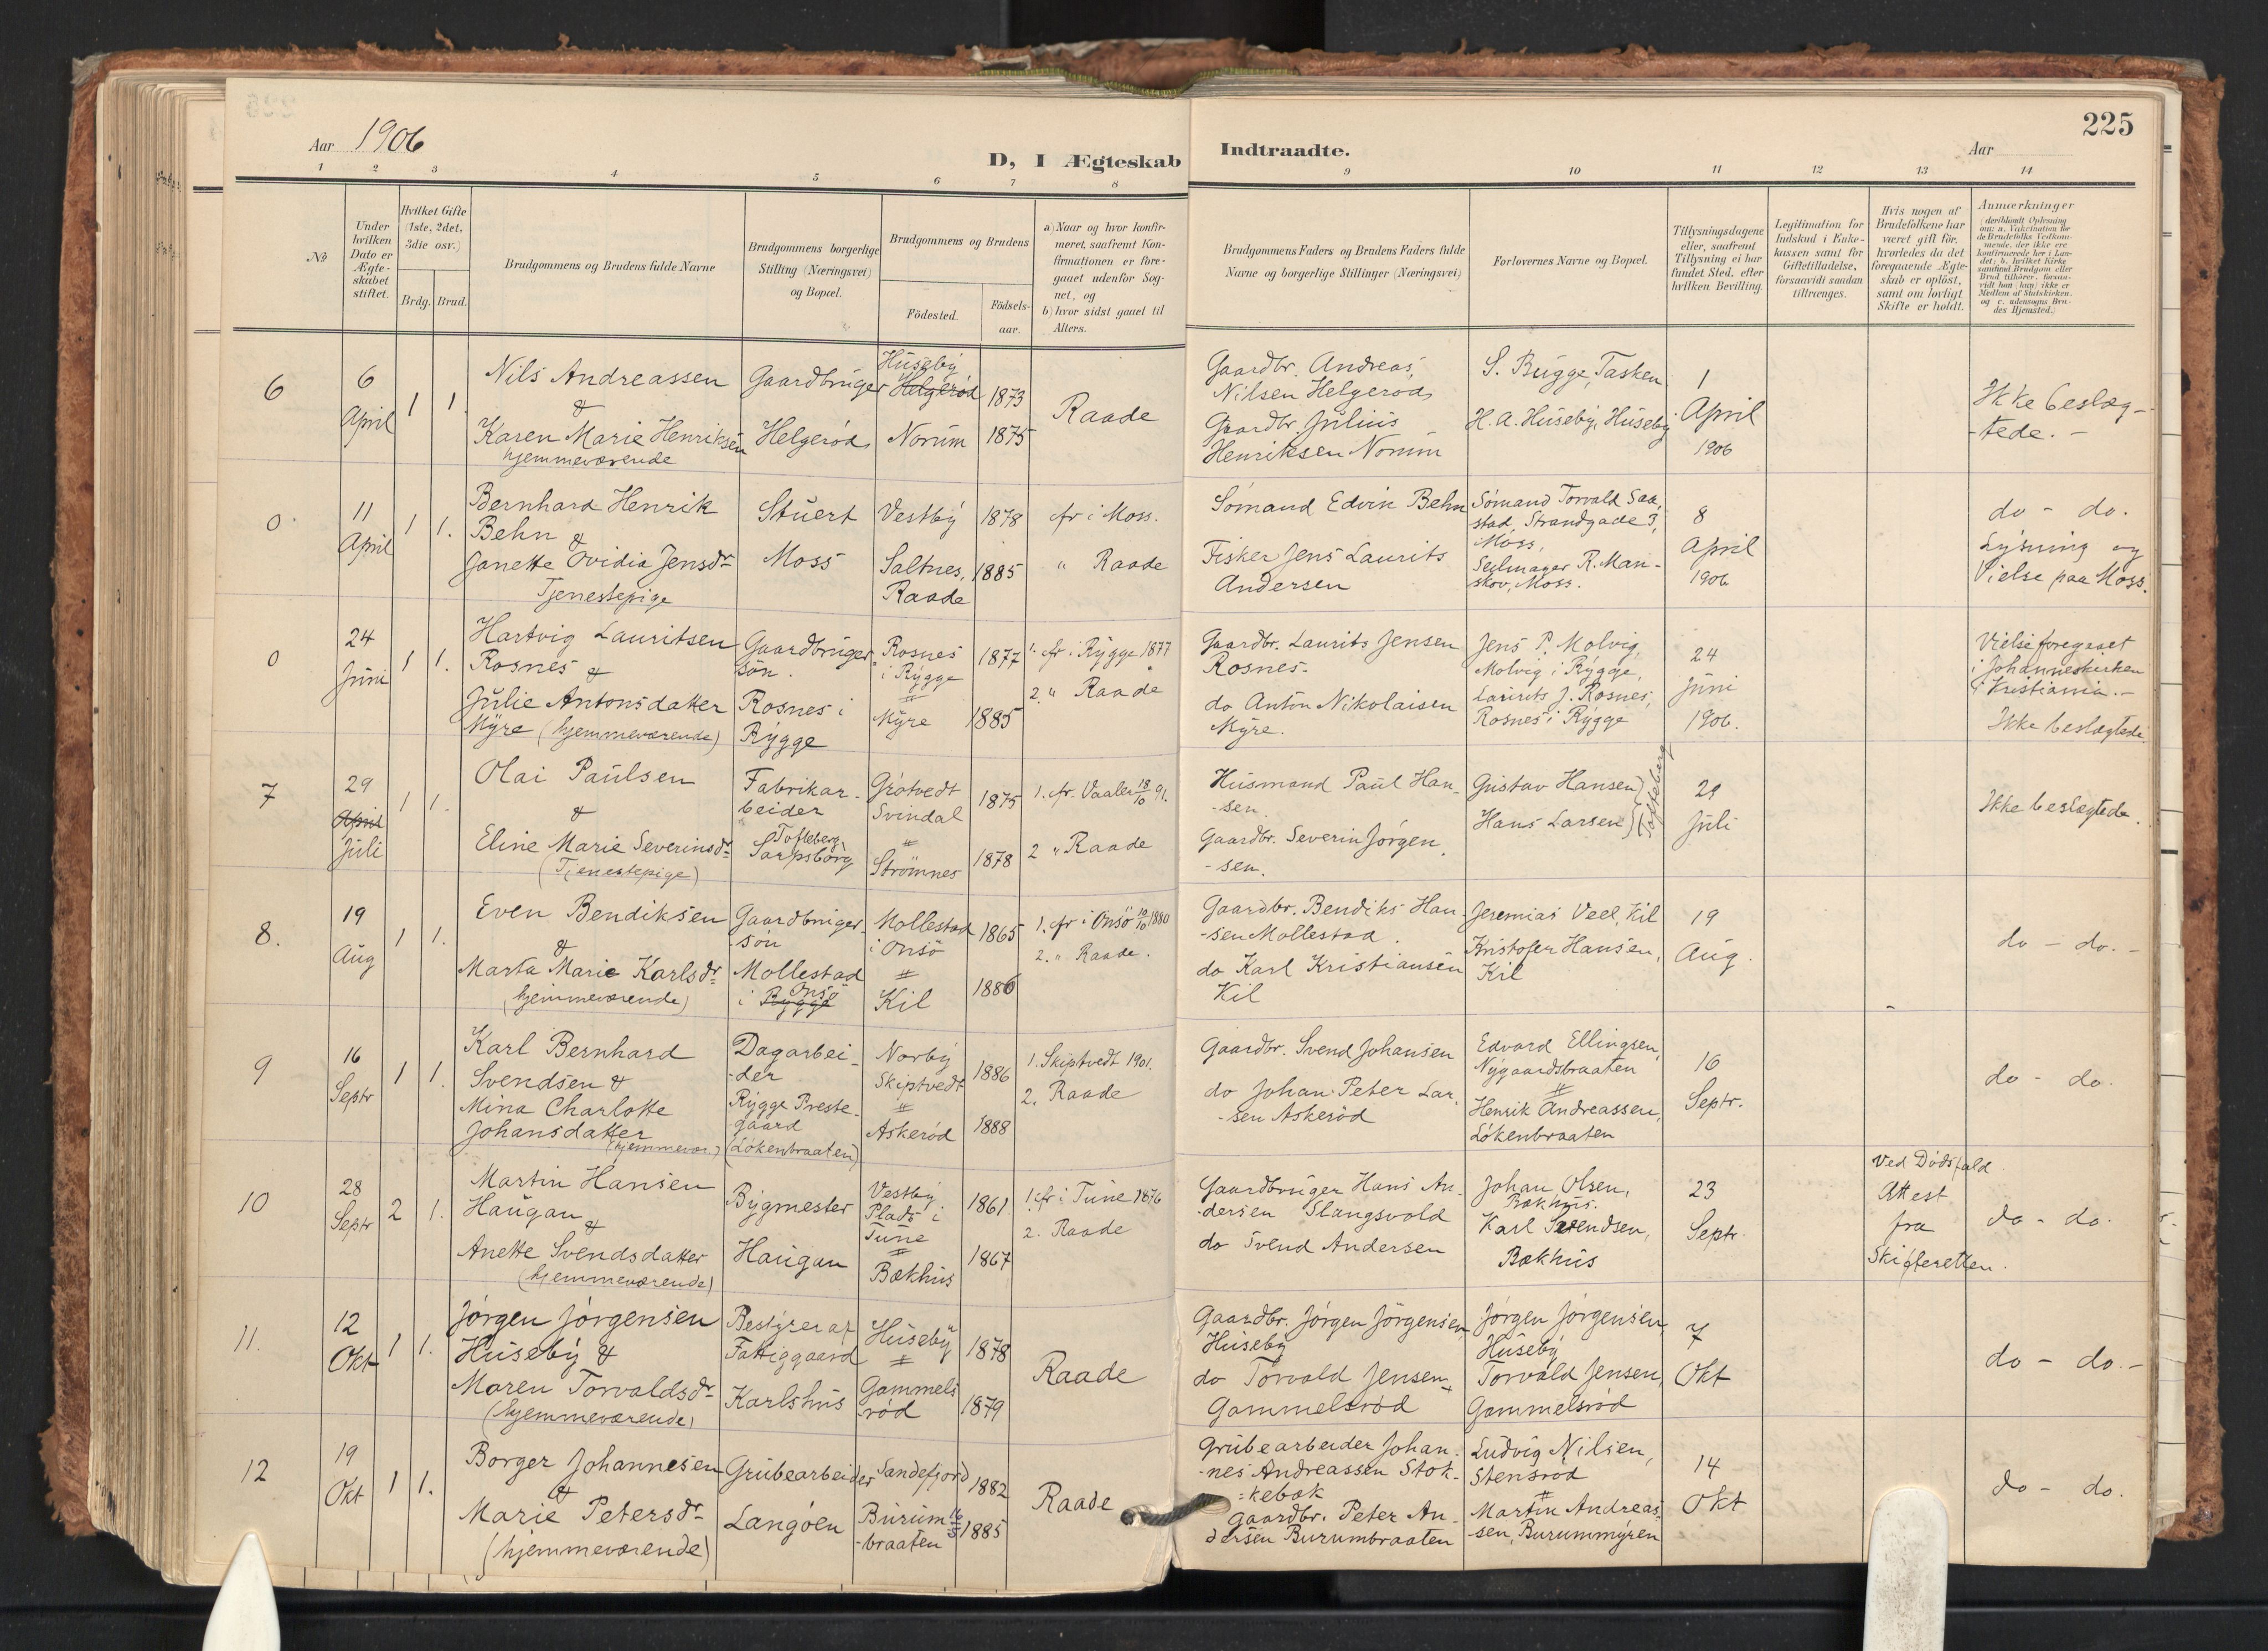 225
Aar 1906
D, I Ægteskab Indtraadte.
Aar
1 2 3 4 5 6 7 8 9 10 11 12 13 14
No
Under hvilken Dato er Ægteskabet stiftet.
Hvilket Gifte (1ste, 2det, 3die osv.)
Brdg. Brud.
Brudgommens og Brudens fulde Navne
Brudgommens borgerlige Stilling (Næringsvei) og Bopæl.
Brudgommens og Brudens
Födested.
Födsels-aar.
a) Naar og hvor konfirmeret, saafremt Konfirmationen er foregaaet udenfor Sognet, og
b) hvor sidst gaaet til Alters.
Brudgommens Faders og Brudens Faders fulde Navne og borgerlige Stillinger (Næringsvei)
Forlovernes Navne og Bopæl.
Tillysningsdagene eller, saafremt Tillysning ei har fundet Sted, efter hvilken Bevilling.
Legitimation for Indskud i Enkekassen samt for Giftetilladelse, forsaavidt saadan tiltrænges.
Hvis nogen af Brudefolkene har været gift för, hvorledes da det foregaaende Ægteskab er oplöst, samt om lovligt Skifte er holdt.
Anmærkninger
6
6
April
1 1
Nils Andreassen
&
Karen Marie Henriksen
hjemmeværende
Gaardbruger
Helgeröd
Huseby
Helgeröd 1873
Norum 1875
Raade
Gaardbr. Andreas
Nilsen Helgeröd
Gaardbr. Julius
Henriksen Norum
S. Bugge, Tasken
H. A. Huseby, Huseby
1
April
1906
Ikke beslæg-
-tede. -
0
11
April
1 1.
Bernhard Henrik
Behn &
Janette Ovidia Jensdr
Tjenestepige
Stuert
Moss
Vestby 1878
Saltnes, 1885
Raade
cfr i Moss.
" Raade
Sömand Edvin Behn
Fisker Jens Laurits
Andersen
Sömand Torvald Saa-
stad, Strandgade 3,
Moss,
Seilmager R. Man-
skov, Moss.
8
April
1906
do - do.
Lysning og
Vielse paa Moss.
0
24
Juni
1 1.
Hartvig Lauritsen
Rosnes &
Julie Antonsdatter
Myre (hjemmeværende)
Gaardbruger-
sön.
Rosnes i
Rygge
Rosnes 1877
i Rygge
Myre 1885
1. cfr i Rygge 1877
2. " Raade
Gaardbr. Laurits Jensen
Rosnes.
do Anton Nikolaisen
Myre.
Jens P. Molvig,
Molvig i Rygge,
Laurits J. Rosnes,
Rosnes i Rygge
24
Juni
1906.
Vielse foregaaet
i Johanneskirken
i Kristiania.-
Ikke beslægtede
7
29
April
Juli
1 1.
Olai Paulsen
&
Eline Marie Severinsdr
(Tjenestepige)
Fabrikar-
beider
Tofteberg
Sarpsborg
Grötvedt 1875
Svindal
Strömnes 1878
1. cfr. Vaaler 18/10 91.
2 " Raade
Husmand Paul Han-
-sen
Gaardbr. Severin Jörgen
-sen.
Gustav Hansen
Hans Larsen
Tofteberg
29
Juli
Ikke beslægtede.
8.
19
Aug
1 1.
Even Bendiksen
&
Marta Marie Karlsdr
(hjemmeværende)
Gaardbruger-
-sön
Mollestad
Onsö
i Rygge
Mollestad 1865
i Onsö
Kil 1886
1. cfr i Onsö 10/10 1880
2. " Raade.
Gaardbr. Bendiks Han-
-sen Mollestad.
do Karl Kristiansen
Kil
Jeremias Veel, Kil
Kristofer Hansen,
Kil
19
Aug.
do - do. -
9
16
Septr
1 1.
Karl Bernhard
Svendsen &
Mina Charlotte
Johansdatter
(hjemmevær.)
Dagarbei-
-der
Rygge Preste-
gaard
(Lökenbraaten)
Norby 1886
Skiptvedt
Askeröd 1888
1. Skiptvedt 1901.
2. Raade
Gaardbr. Svend Johansen
do Johan Peter Lar-
-sen Askeröd
Edvard Ellingsen,
Nygaardsbraaten
Henrik Andreassen,
Lökenbraaten
16
Septr.
do - do.
10
28
Septr
2 1.
Martin Hansen
Haugan
&
Anette Svendsdatter
(hjemmeværende)
Bygmester
Haugan
Vestby 1861
Plads i
Tune
Bækhus 1867
1. cfr i Tune 1876
2. Raade
Gaardbruger Hans An-
-dersen Slangsvold
do Svend Andersen
Johan Olsen,
Bækhus.
Karl Svendsen,
Bækhus
23
Septr.
Ved Dödsfald.
Attest
fra
Skifteretten.
do - do.
11.
12
Okt
1 1.
Jörgen Jörgensen
Huseby &
Maren Torvaldsdr
(hjemmeværende)
Bestyrer af
Fattiggaard
Karlshus
Huseby 1878
Gammels
-röd 1879
Raade
Gaardbr. Jörgen Jörgensen
Huseby
do Torvald Jensen
Gammelsröd
Jörgen Jörgensen,
Huseby
Torvald Jensen,
Gammelsröd
7
Okt
do - do.-
12
19
Okt
1 1.
Borger Johannesen
&
Marie Petersdr
(hjemmeværende)
Grubearbeider
Langöen
Sandefjord 1882
Burum 1885
-braaten
Raade
Grubearbeider Johan-
-nes Andreassen Stok-
-kebæk
Gaardbr. Peter An-
dersen Burumbraaten
Ludvig Nilsen,
Stensrod
Martin Andreas-
-sen, Burummyren
14
Okt
do - do.